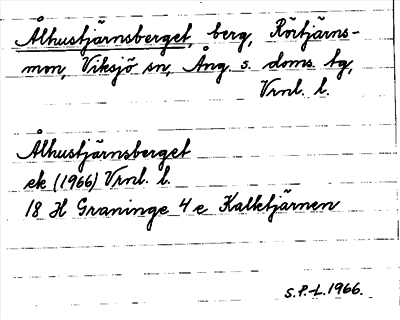 Ålhustjärnsberget, berg, Rörtjärns-
mon, Viksjö sn, Ång. s. doms. tg,
Vrnl. l.
Ålhustjärnsberget
ek (1966) Vrnl. l.
18 H Graninge 4 e Kalktjärnen
S.P.-L. 1966.